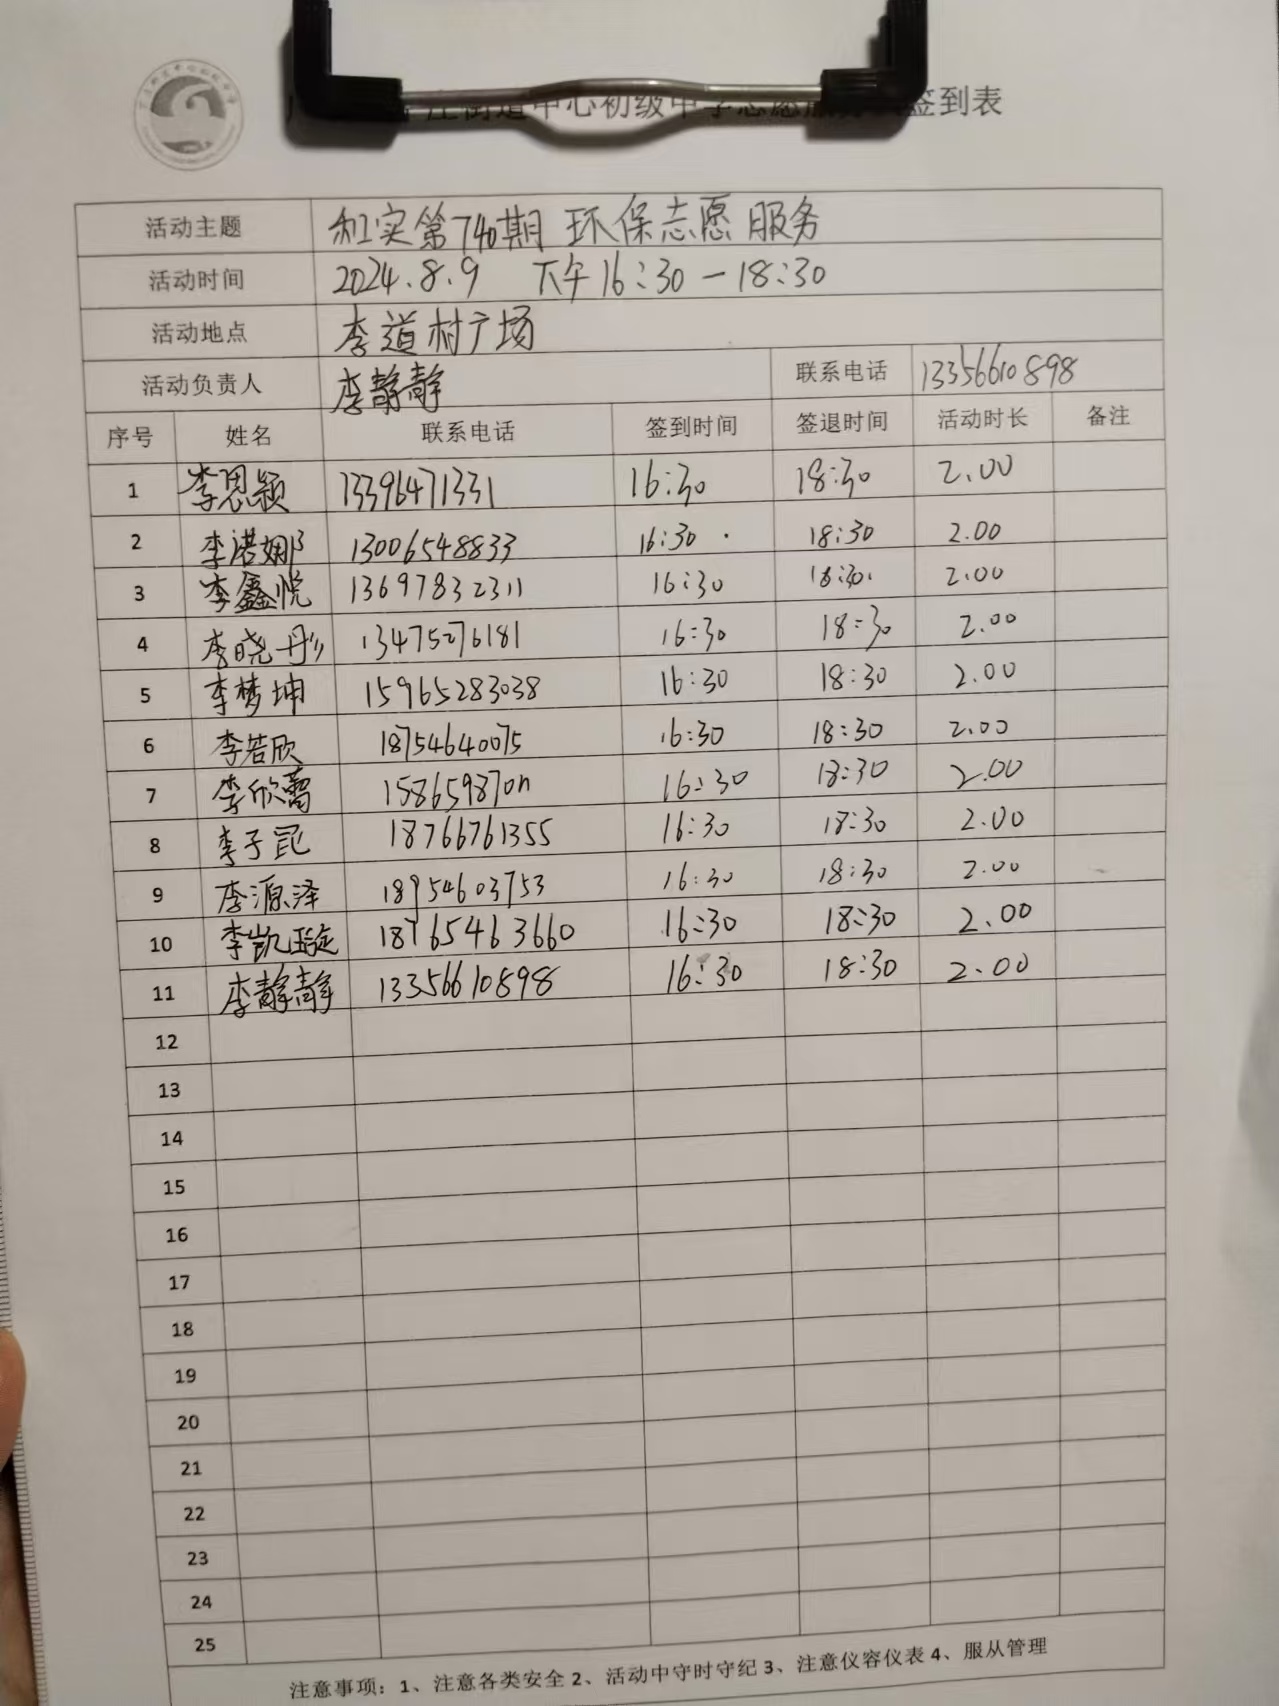 庄街道中心初级中学志愿服务 签到表
活动主题 和实第740期 环保志愿服务
活动时间 2024.8.9 下午16:30-18:30
活动地点 李道村广场
活动负责人 李静静 联系电话 13356610898
序号 姓名 联系电话 签到时间 签退时间 活动时长 备注
1 李思颖 13396471331 16:30 18:30 2.00
2 李诺娜 13006548833 16:30 18:30 2.00
3 李鑫悦 13697832311 16:30 18:30 2.00
4 李晓彤 13475276181 16:30 18:30 2.00
5 李梦坤 15965283038 16:30 18:30 2.00
6 李若欣 18754640075 16:30 18:30 2.00
7 李欣蕾 16:30 18:30 2.00
8 李子昆 18766761355 16:30 18:30 2.00
9 李源泽 18954603753 16:30 18:30 2.00
10 李凯璇 18765463660 16:30 18:30 2.00
11 李静静 13356610898 16:30 18:30 2.00
12
13
14
15
16
17
18
19
20
21
22
23
24
25
注意事项：1、注意各类安全 2、活动中守时守纪 3、注意仪容仪表 4、服从管理